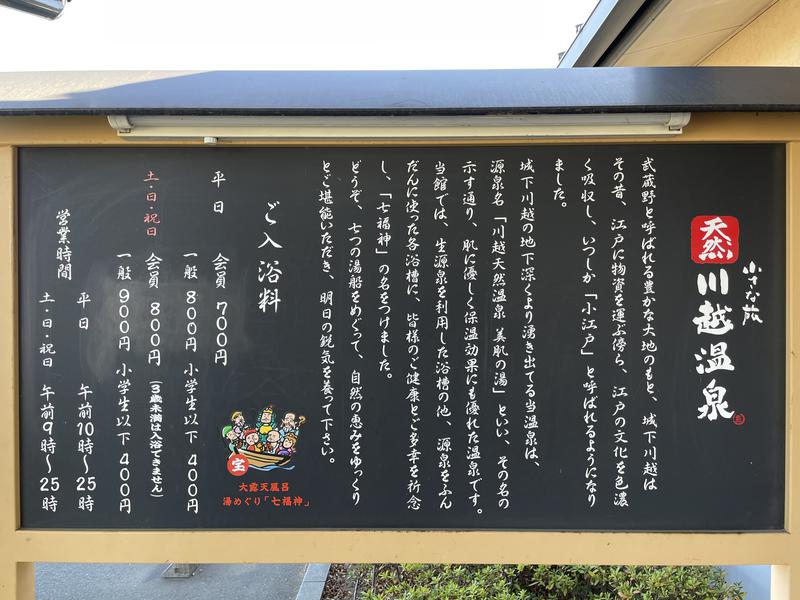 小さな旅
天然
川越温泉
武蔵野と呼ばれる豊かな大地のもと、城下川越は
その昔、江戸に物資を運ぶ傍ら、江戸の文化を色濃
く吸収し、いつしか「小江戸」と呼ばれるようになり
ました。
城下川越の地下深くより湧き出てる当温泉は、
源泉名「川越天然温泉 美肌の湯」といい、その名の
示す通り、肌に優しく保温効果にも優れた温泉です。
当館では、生源泉を利用した浴槽の他、源泉をふん
だんに使った各浴槽に、皆様のご健康とご多幸を祈念
し、「七福神」の名をつけました。
どうぞ、七つの湯船をめぐって、自然の恵みをゆっくり
とご堪能いただき、明日の鋭気を養って下さい。
宝
大露天風呂
湯めぐり「七福神」
ご入浴料
平日 会員 700円
一般 800円 小学生以下 400円
土・日・祝日 会員 800円 (3歳未満は入浴できません)
一般 900円 小学生以下 400円
営業時間
平日 午前10時〜25時
土・日・祝日 午前9時〜25時